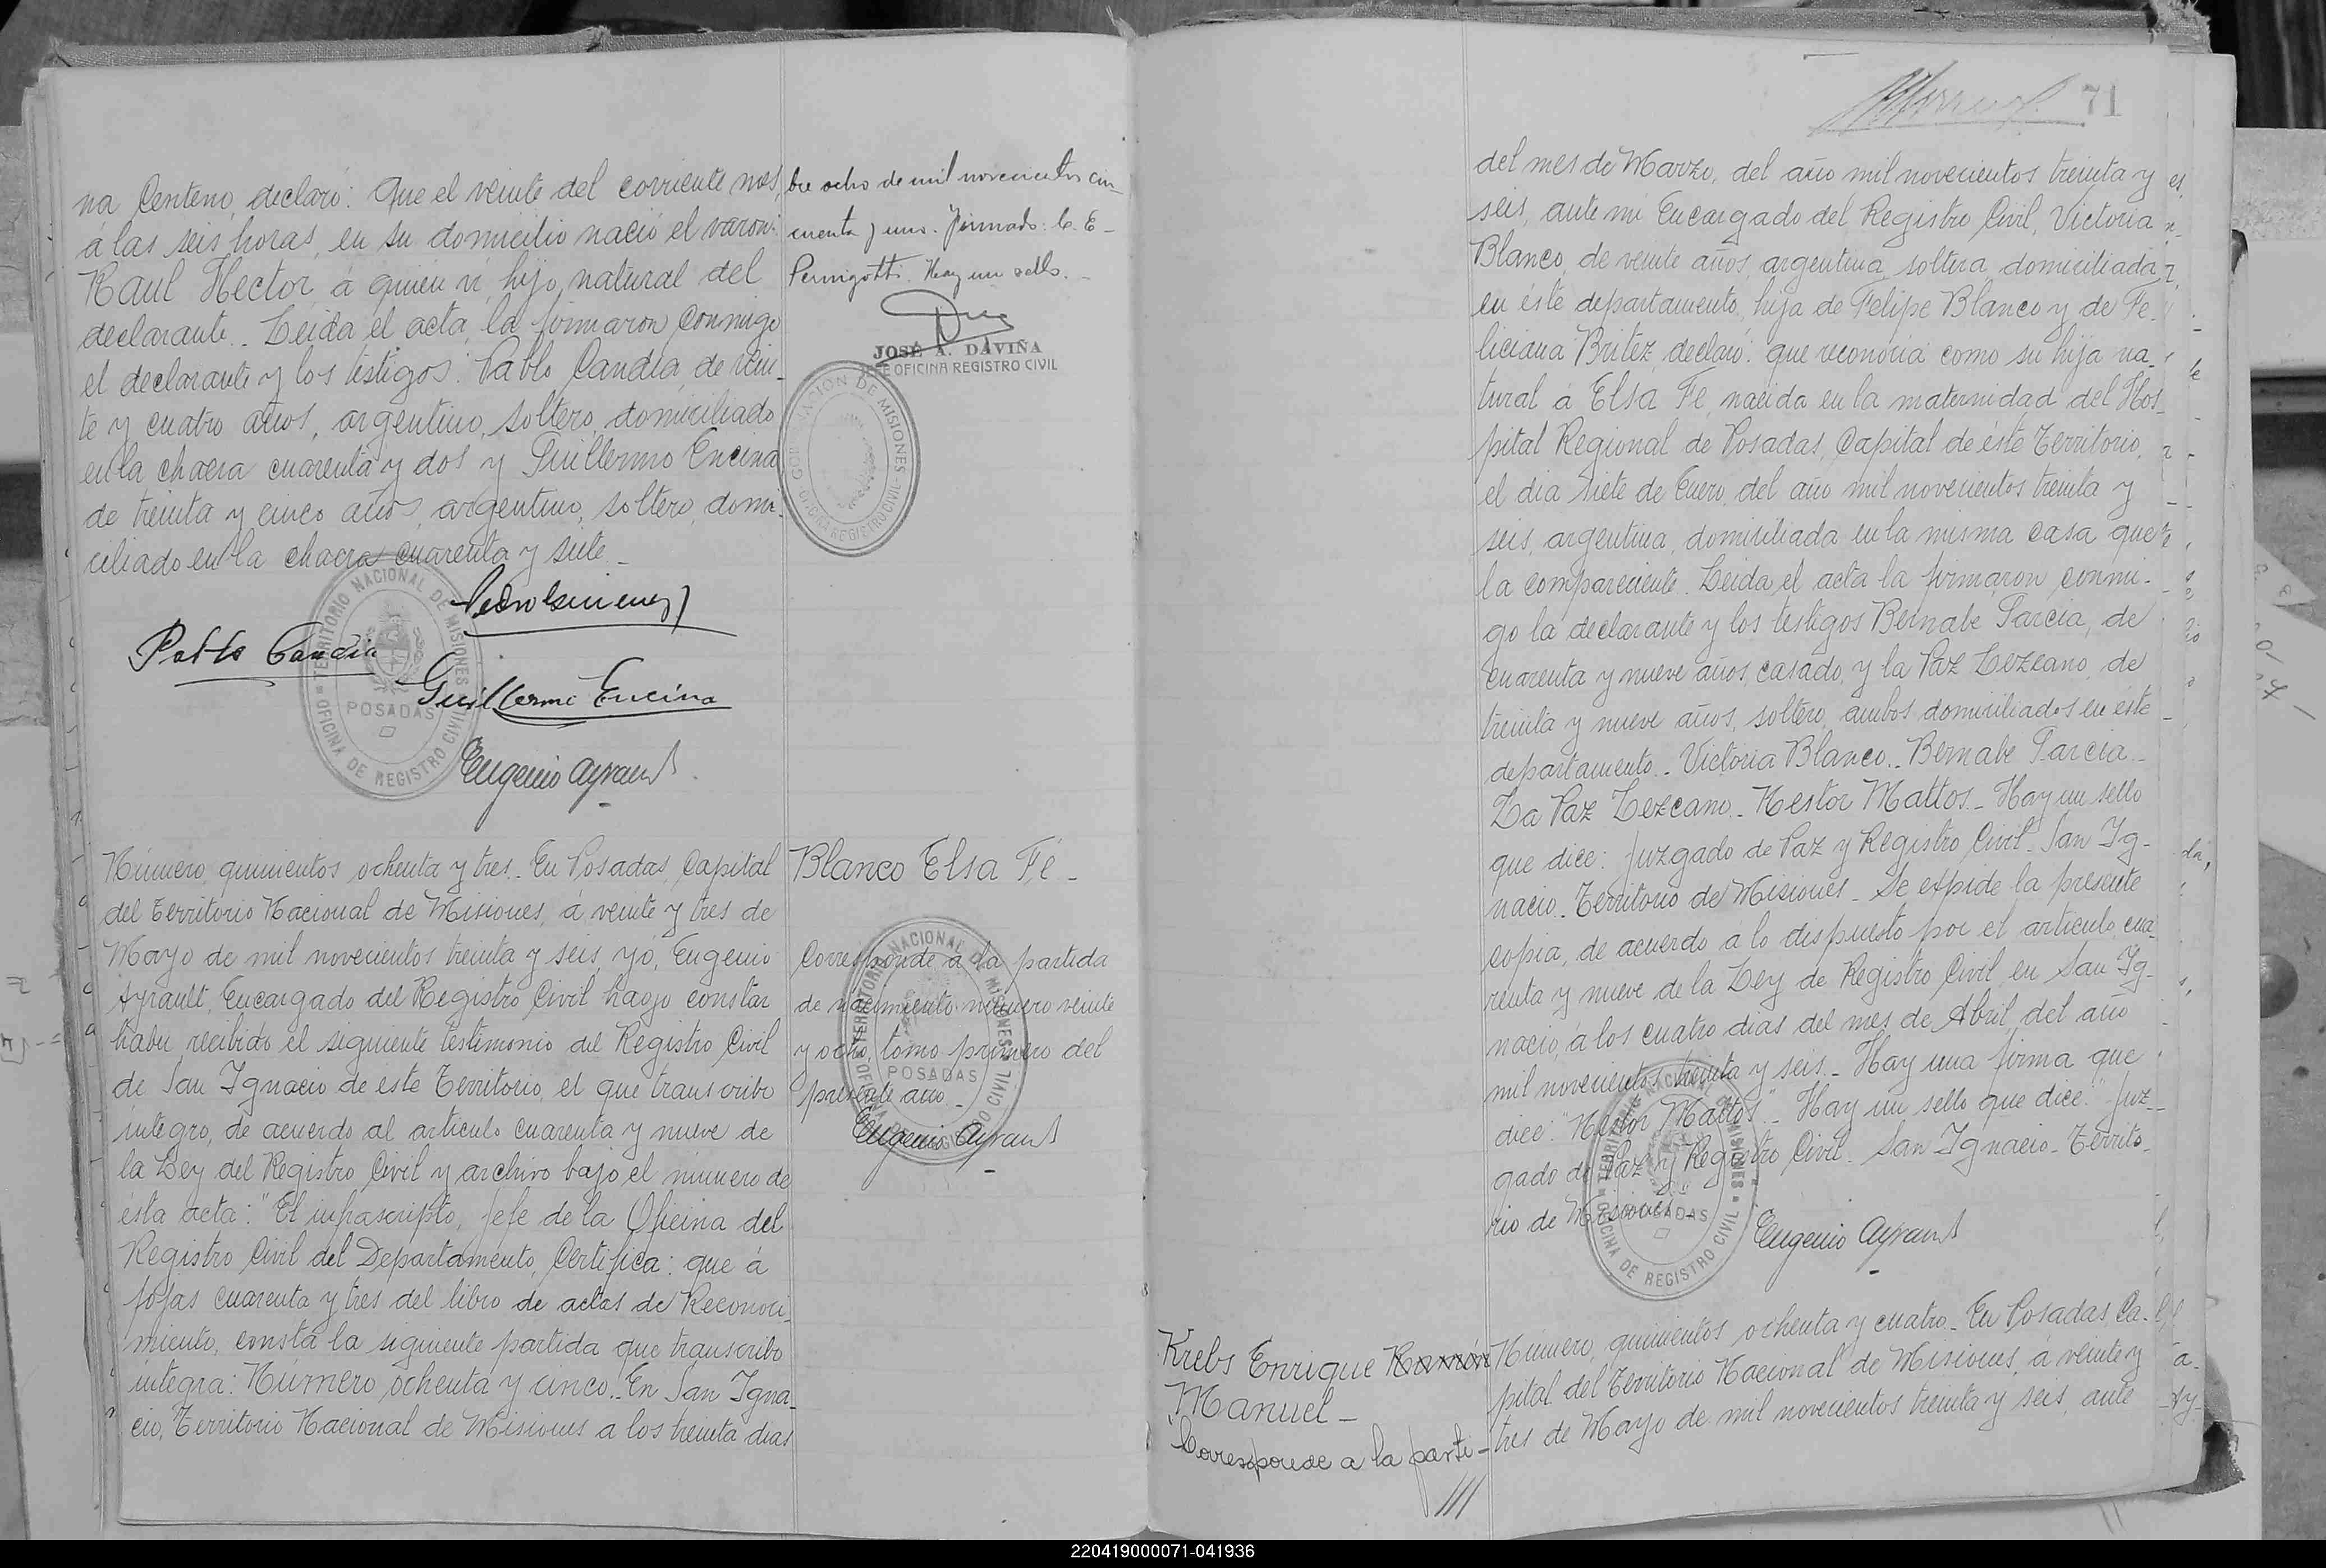 na Centeno, declaró: Que el veinte del corriente mes,
á las seis horas, en su domicilio nació el varon:
Raul Hector, á quien ví, hijo natural del
declarante. Leida el acta, la firmaron conmigo
el declarante y los testigos: Pablo Candia, de vein-
te y cuatro años, argentino, soltero, domiciliado
en la chacra cuarenta y dos y Guillermo Encina
de treinta y cinco años, argentino, soltero, domi-
ciliado en la chacra cuarenta y siete.
Pedro Gimenez
Pablo Candia
Guillermo Encina
Eugenio Ayrault
TERRITORIO NACIONAL DE MISIONES
POSADAS
OFICINA DE REGISTRO CIVIL
bre ocho de mil novecientos cin-
cuenta y uno. Firmado: C. E.
Pernigotti. Hay un sello.
JOSÉ A. DAVIÑA
JEFE OFICINA REGISTRO CIVIL
GOBERNACION DE MISIONES
OFICINA REGISTRO CIVIL
Número, quinientos ochenta y tres. En Posadas, Capital
del Territorio Nacional de Misiones, á veinte y tres de
Mayo de mil novecientos treinta y seis, yó, Eugenio
Ayrault, Encargado del Registro Civil, hago constar
haber recibido el siguiente testimonio del Registro Civil
de San Ignacio de este Territorio, el que transcribo
íntegro, de acuerdo al artículo cuarenta y nueve de
la Ley del Registro Civil y archivo bajo el número de
ésta acta: "El infrascripto, Jefe de la Oficina del
Registro Civil del Departamento, Certifica: que á
fojas cuarenta y tres del libro de actas de Reconoci-
miento, consta la siguiente partida que transcribo
íntegra: Número, ochenta y cinco. En San Igna-
cio, Territorio Nacional de Misiones a los treinta dias
Blanco Elsa Fé
Corresponde a la partida
de nacimiento número veinte
y ocho, tomo primero del
presente año.
Eugenio Ayrault
TERRITORIO NACIONAL DE MISIONES
POSADAS
OFICINA DE REGISTRO CIVIL
71
del mes de Marzo, del año mil novecientos treinta y
seis, ante mi Encargado del Registro Civil, Victoria
Blanco, de veinte años, argentina, soltera, domiciliada
en éste departamento, hija de Felipe Blanco y de Fe-
liciana Britez, declaró: que reconocia como su hija na-
tural á Elsa Fé, nacida en la maternidad del Hos-
pital Regional de Posadas, Capital de éste Territorio,
el dia siete de Enero, del año mil novecientos treinta y
seis, argentina, domiciliada en la misma casa que
la compareciente. Leida, el acta la firmaron conmi-
go la declarante y los testigos Bernabe Garcia, de
cuarenta y nueve años, casado, y la Paz Lezcano, de
treinta y nueve años, soltero, ambos domiciliados en éste
departamento. Victoria Blanco. Bernabe Garcia
La Paz Lezcano. Nestor Mattos. Hay un sello
que dice: Juzgado de Paz y Registro Civil. San Ig-
nacio. Territorio de Misiones. Se expide la presente
copia, de acuerdo a lo dispuesto por el artículo cua-
renta y nueve de la Ley de Registro Civil, en San Ig-
nacio, á los cuatro dias del mes de Abril, del año
mil novecientos treinta y seis. Hay una firma que
dice: "Nestor Mattos". Hay un sello que dice: "Juz-
gado de Paz y Registro Civil. San Ignacio. Territo-
rio de Misiones.
Eugenio Ayrault
TERRITORIO NACIONAL DE MISIONES
POSADAS
OFICINA DE REGISTRO CIVIL
Krebs Enrique Ramón
Manuel
Corresponde a la parti-
Número, quinientos ochenta y cuatro. En Posadas, Ca-
pital del Territorio Nacional de Misiones, á veinte y
tres de Mayo de mil novecientos treinta y seis, ante
220419000071-041936